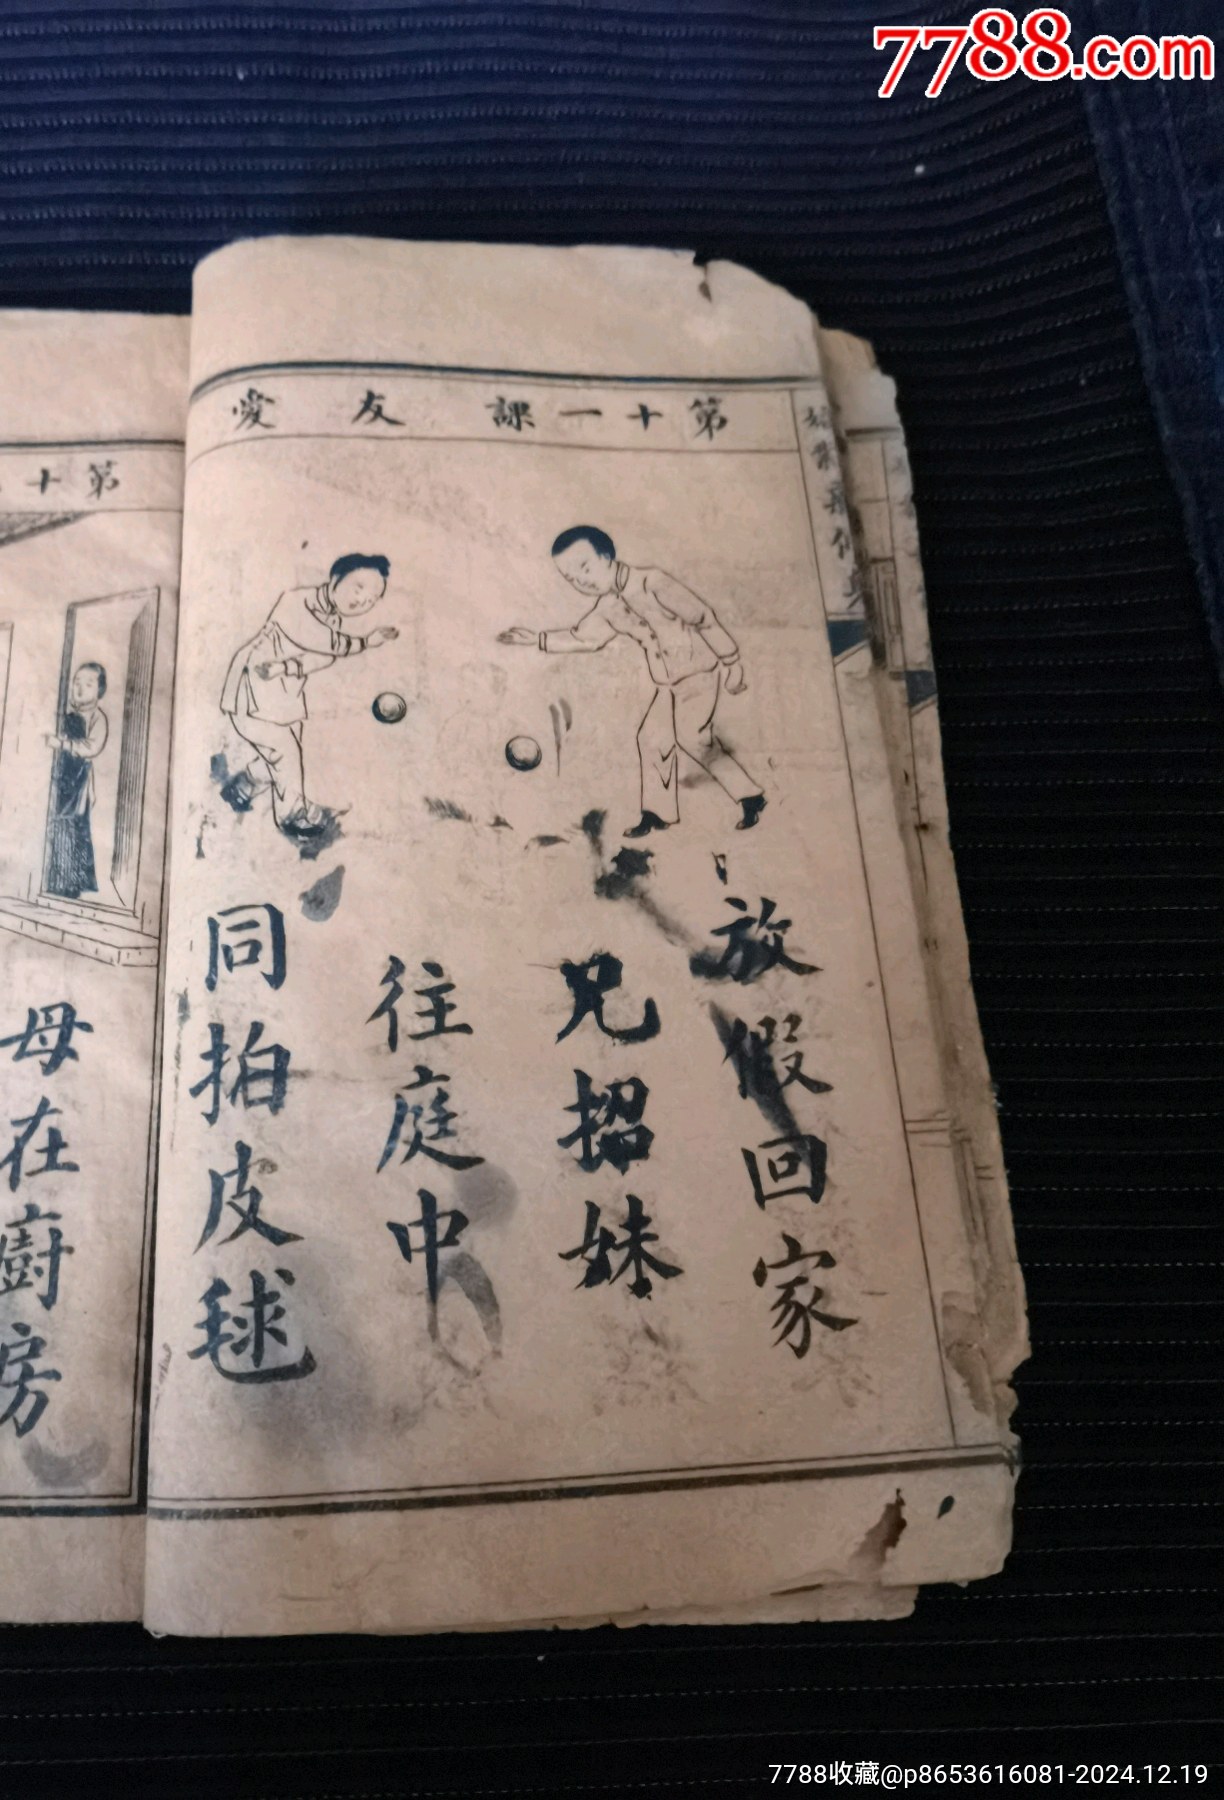 7788.com
第十一課 友愛
放假回家
兄招妹
往庭中
同拍皮球
第十
母在廚房
7788收藏@p8653616081-2024.12.19